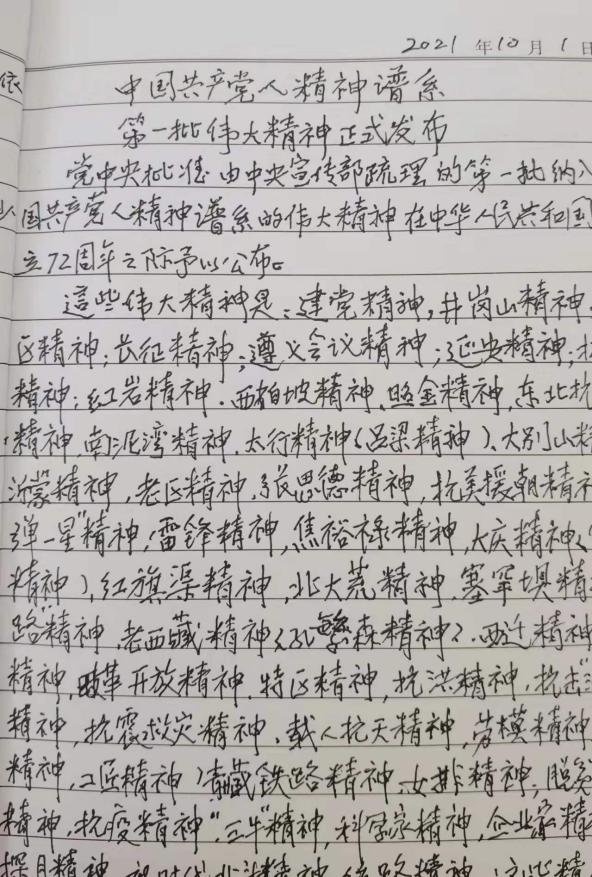 2021年10月1日
依
中国共产党人精神谱系
第一批伟大精神正式发布
党中央批准由中央宣传部疏理的第一批纳入
国共产党人精神谱系的伟大精神在中华人民共和国
立72周年之际予以公布。
這些伟大精神是:建党精神,井岗山精神,
区精神;长征精神;遵义会议精神;延安精神;
精神;红岩精神.西柏坡精神.照金精神,东北抗
精神,南泥湾精神.太行精神(吕梁精神)、大别山精
沂蒙精神,老区精神,张思德精神,抗美援朝精神
弹一星"精神,雷锋精神,焦裕禄精神,大庆精神(
精神),红旗渠精神,北大荒精神,塞罕坝精
路"精神,老西藏精神(孔繁森精神).西迁精神
精神,改革开放精神.特区精神,抗洪精神,抗击"
精神,抗震救灾精神.载人抗天精神,劳模精神
精神,工匠精神)青藏铁路精神,女排精神,脱贫
精神,抗疫精神"三牛"精神,科学家精神,企业家精
探月精神 新时代北斗精神 丝路精神.这些精